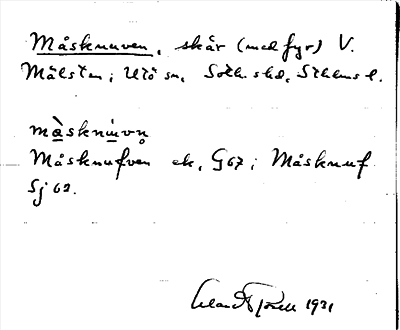 Måsknuven, skär (med fyr) V.
Mälsten; Utö sn, Soth. shd, Sthlms l.
måsknuvn̥
Måsknufven ek. G67; Måsknuf
Sj 62.
1931